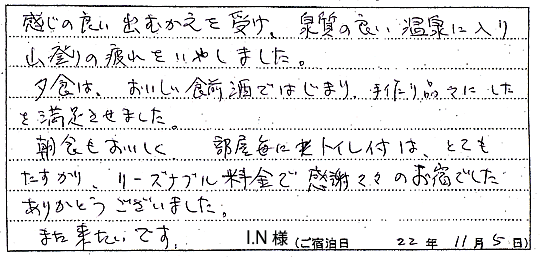 感じの良い出むかえを受け、泉質の良い温泉に入り
山登りの疲れをいやしました。
夕食は、おいしい食前酒ではじまり、手作り品々にした
を満足させました。
朝食もおいしく、部屋毎にトイレ付は、とても
たすかり、リーズナブル料金で感謝々々のお宿でした
ありがとうございました。
また来たいです。 I.N 様 (ご宿泊日 22 年 11 月 5 日)